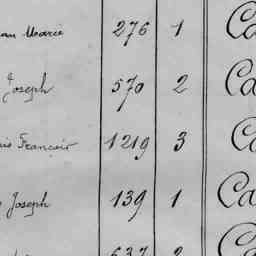 an Marie 276 1 Ca
Joseph 570 2 Ca
is Francois 1219 3 Ca
Joseph 139 1 Ca
637 2 Ca